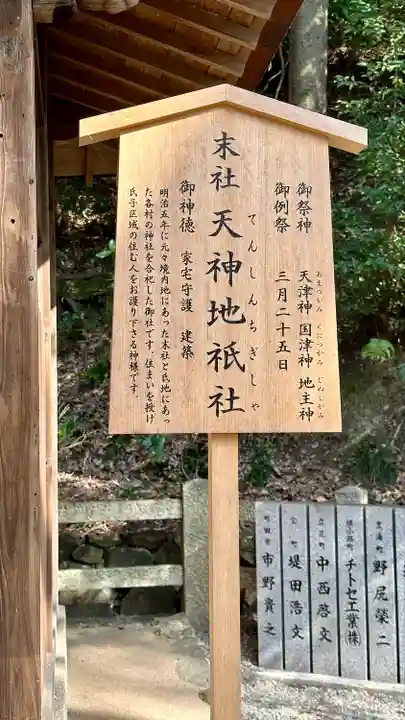 御祭神 天津神 国津神 地主神
あまつかみ くにつかみ じぬしかみ
御例祭 三月二十五日
末社 天神地祇社
てんしんちぎしゃ
御神徳 家宅守護 建築
明治五年に元々境内地にあった末社と氏地にあっ
た各村の神社を合祀した御社です 住まいを授け
氏子区域の住む人をお護り下さる神様です。
野尻榮二
チトセ工業㈱
立花町 中西啓文
宝町 堤田浩文
町田市 市野貴之